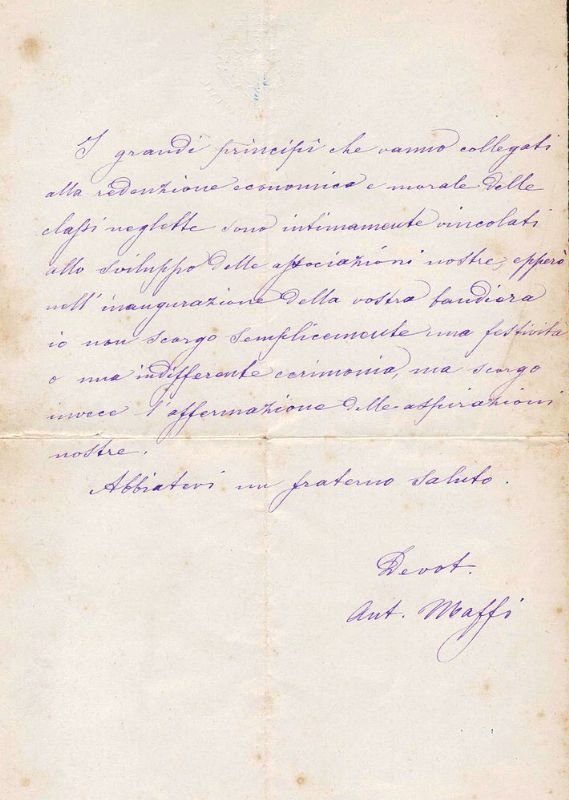 I grandi principi che vanno collegati
alla redenzione economica e morale delle
classi neglette sono intimamente vincolati
allo sviluppo delle associazioni nostre, epperò
nell'inaugurazione della vostra bandiera
io non scorgo semplicemente una festività
o una indifferente cerimonia, ma scorgo
invece l'affermazione delle aspirazioni
nostre.
Abbiatevi un fraterno saluto.
Devot.
Ant. Maffi